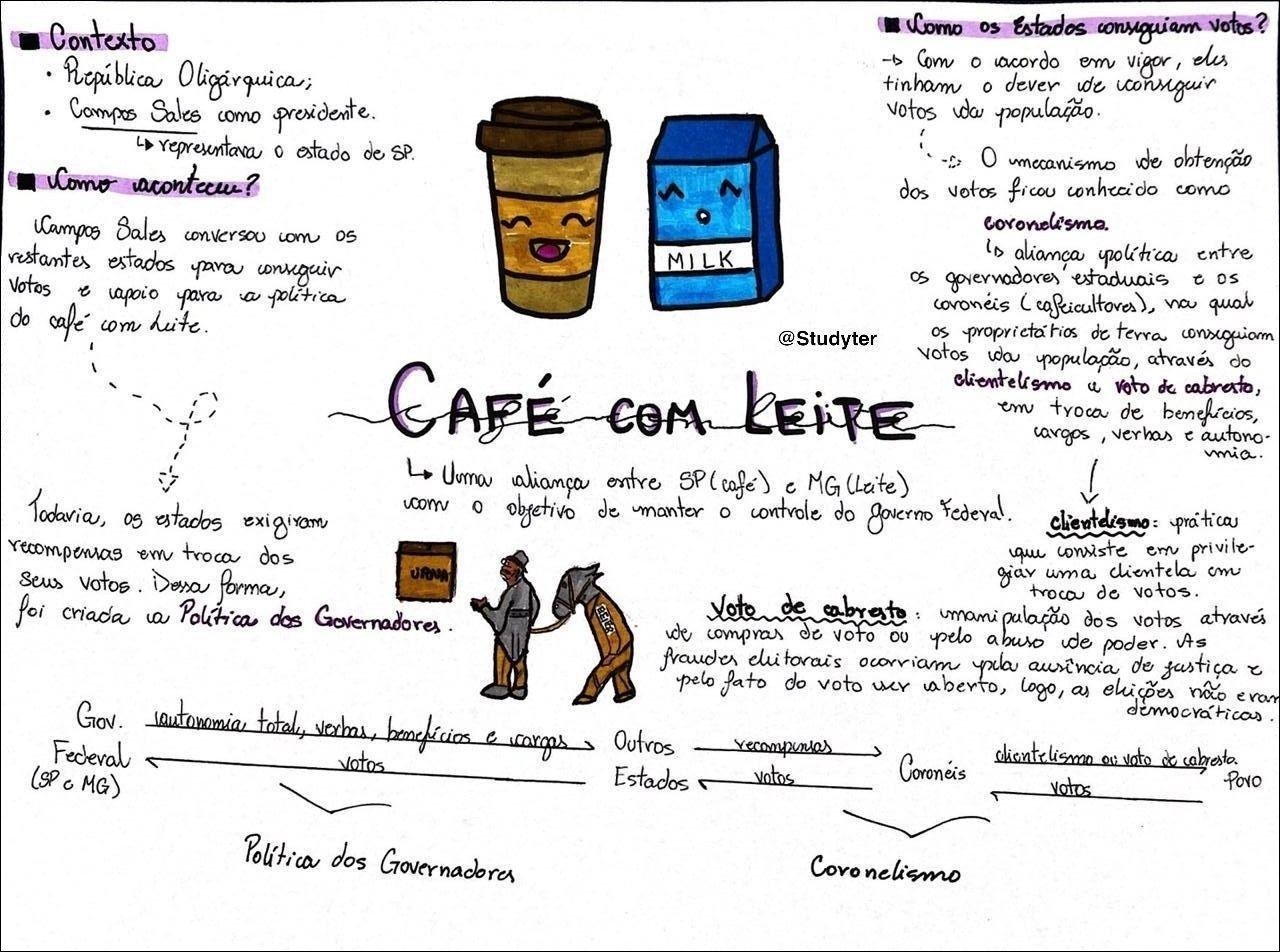 Contexto
• República Oligárquica;
• Campos Sales como presidente.
↳ representava o estado de SP.
Como aconteceu?
Campos Sales conversou com os
restantes estados para conseguir
votos e apoio para a política
do café com Leite.
Todavia, os estados exigiram
recompensas em troca dos
seus votos. Dessa forma,
foi criada a Política dos Governadores.
MILK
@Studyter
CAFÉ COM LEITE
↳ Uma aliança entre SP (café) e MG (Leite)
com o objetivo de manter o controle do governo Federal.
URNA
Como os Estados conseguiam votos?
→ Com o acordo em vigor, eles
tinham o dever de conseguir
votos da população.
O mecanismo de obtenção
dos votos ficou conhecido como
coronelismo.
↳ aliança política entre
os governadores estaduais e os
coronéis (cafeicultores), na qual
os proprietátios de terra conseguiam
votos da população, através do
clientelismo e voto de cabresto,
em troca de benefícios,
cargos, verbas e autono-
mia.
clientelismo: prática
que consiste em privile-
giar uma clientela em
troca de votos.
Voto de cabresto: manipulação dos votos através
de compras de voto ou pelo abuso de poder. As
fraudes eleitorais ocorriam pela ausência de justiça e
pelo fato do voto ser aberto, logo, as eleições não eram
democráticas.
Gov.
Federal
(SP e MG)
autonomia total, verbas, benefícios e cargos
votos
Outros
Estados
recompensas
votos
Coronéis
clientelismo ou voto de cabresto.
votos
Povo
Política dos Governadores
Coronelismo